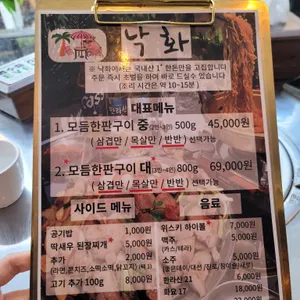 낙화
※ 낙화에서는 국내산 1⁺ 한돈만을 고집합니다
주문 즉시 초벌을 하여 바로 드실수 있습니다
(조리 시간은 약 10~15분)
대표메뉴
1. 모듬한판구이 중 500g 45,000원
( 삼겹만 / 목살만 / 반반 ) 선택가능
2. 모듬한판구이 대 800g 69,000원
( 삼겹만 / 목살만 / 반반 ) 선택가능
사이드 메뉴
공기밥 1,000원
딱새우 된장찌개 5,000원
추가 2,000원
고기 추가 100g 8,000원
음료
위스키 하이볼 7,000원
맥주 5,000원
(카스/테라)
소주 5,000원
한라산 21
화요 17 18,000원